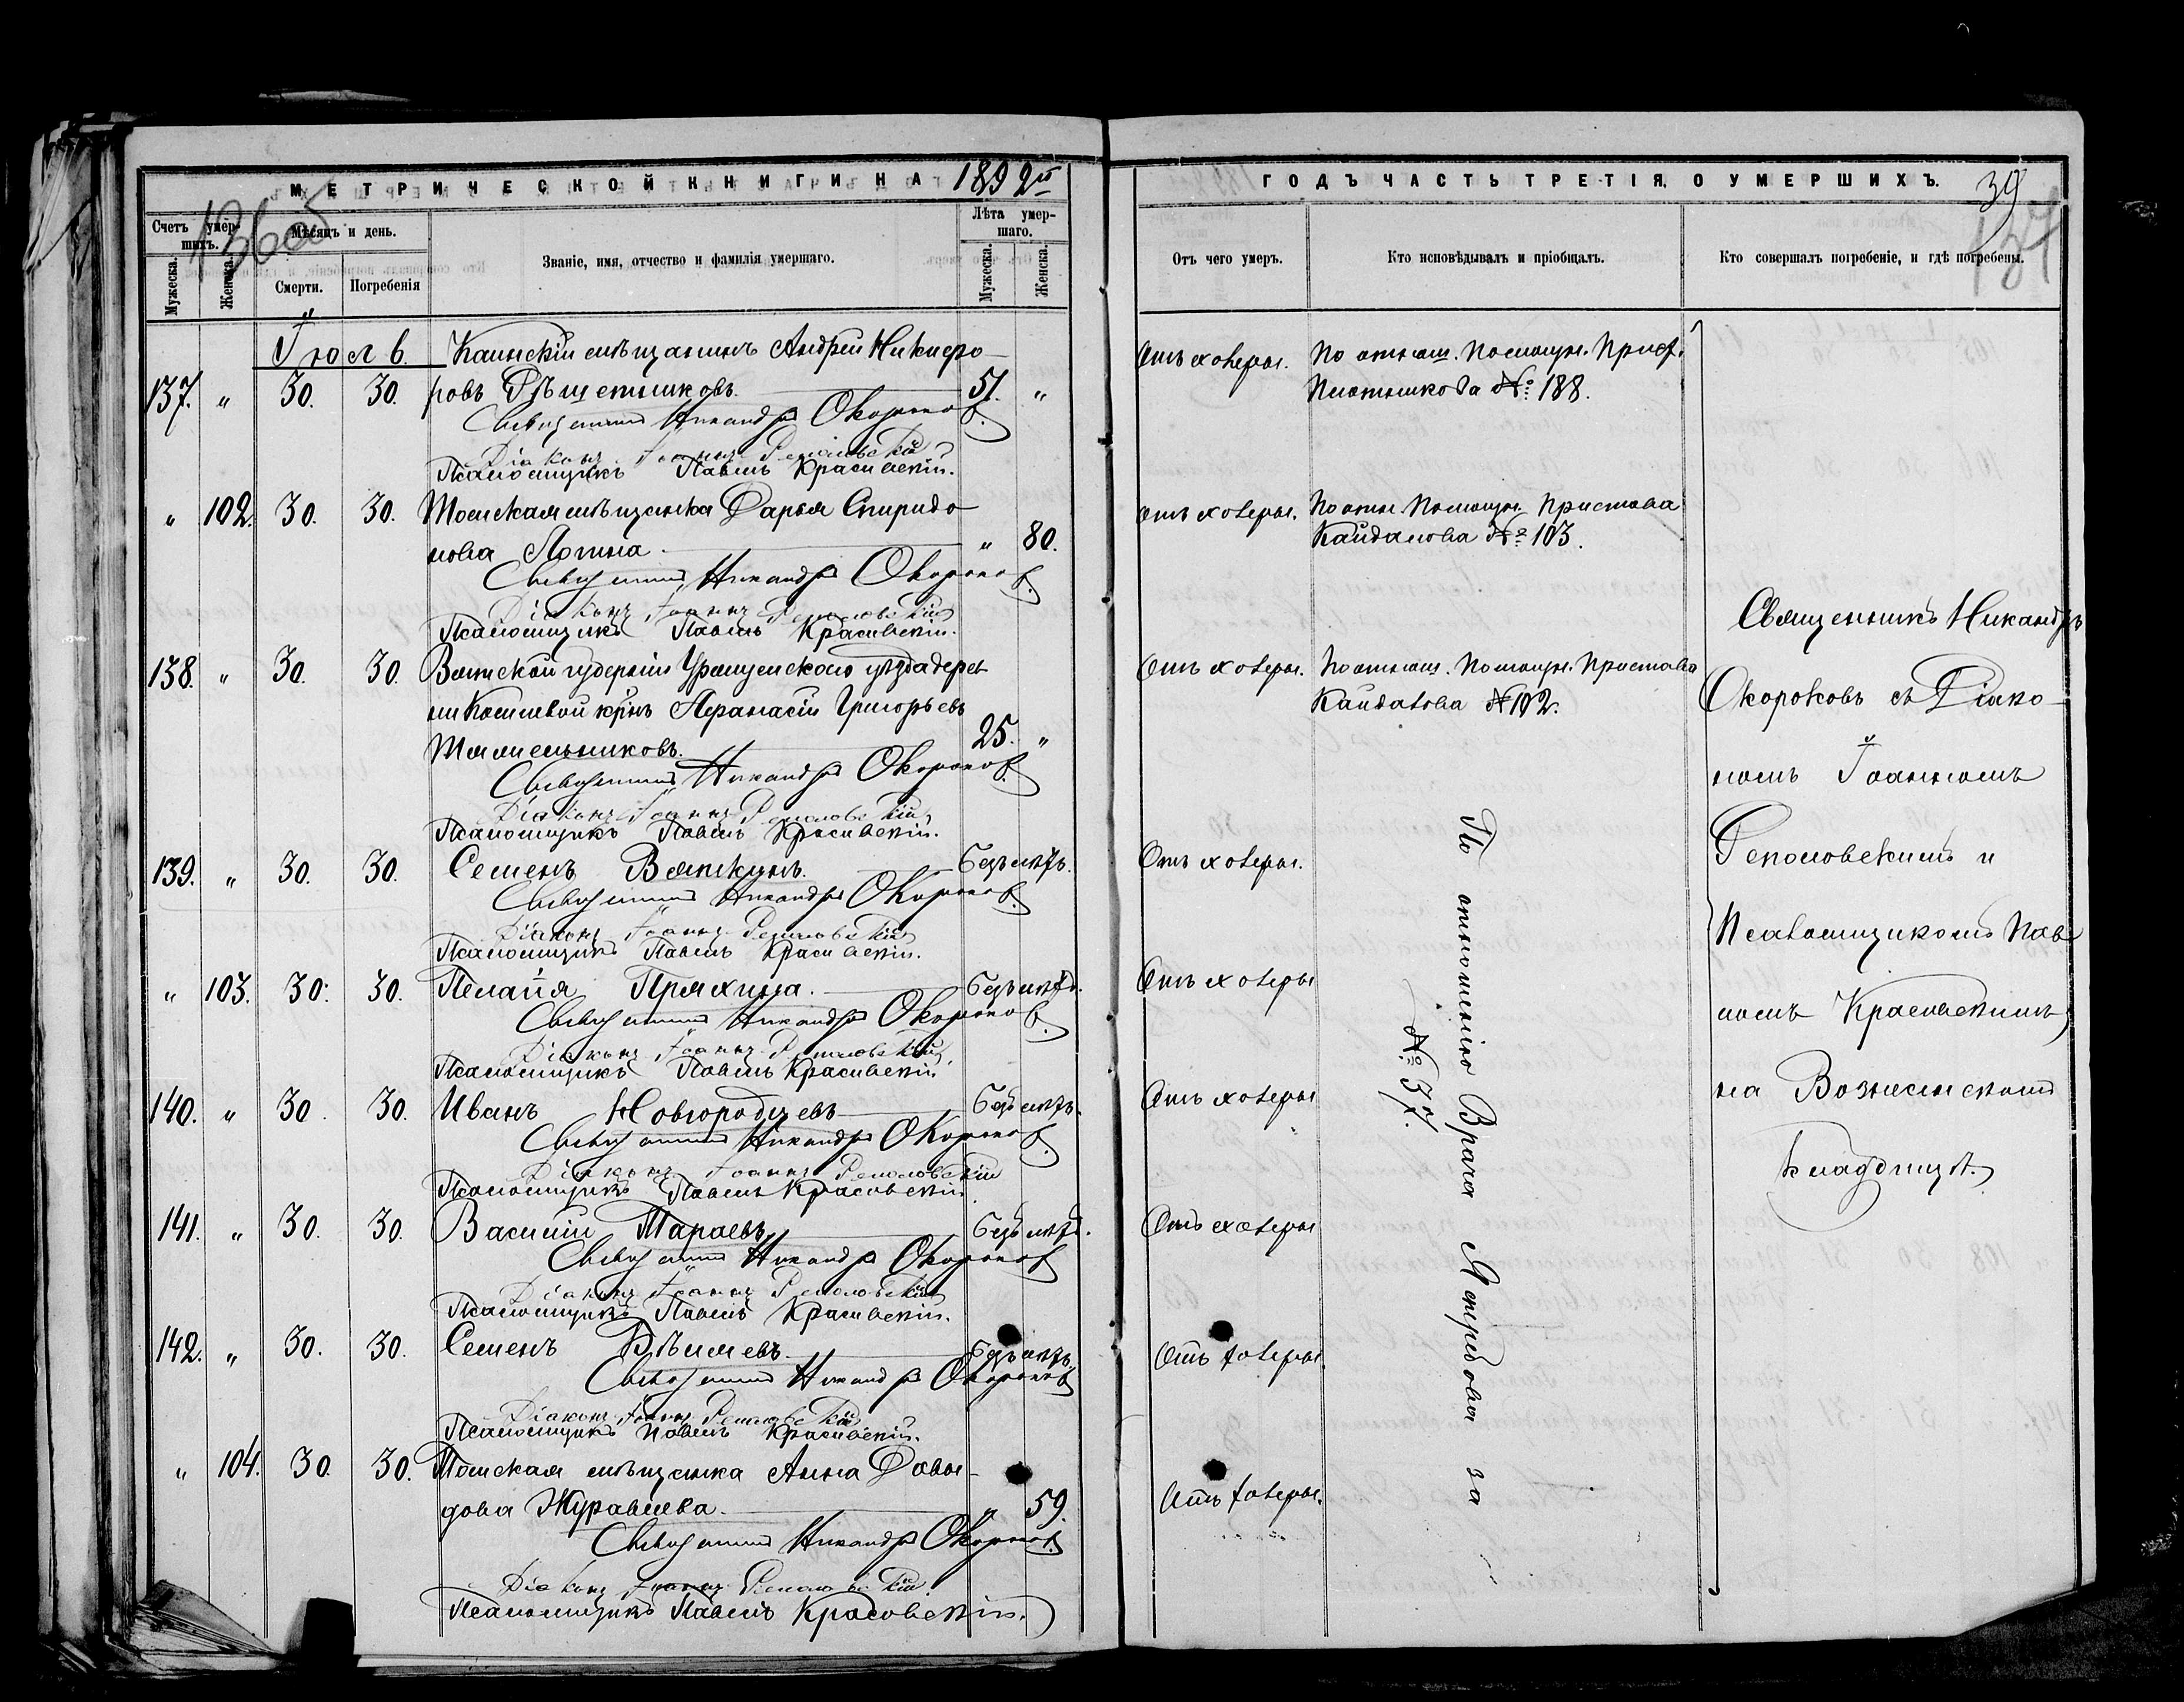 МЕТРИЧЕСКОЙ КНИГИ НА 1892й
Счетъ умер-
шихъ.
Мужеска.
Женска.
136об
Мѣсяцъ и день.
Смерти.
Погребенія
Званіе, имя, отчество и фамилія умершаго.
Лѣта умер-
шаго.
Мужеска.
Женска.
Іюль.
Каинскій мѣщанинъ Андрей Никифо-
137. " 30. 30. ровъ Рѣшетниковъ. 51. "
Священникъ Никандръ Окороковъ.
Діаконъ Іоаннъ Реполовскій
Псаломщикъ Павелъ Красовскій.
" 102. 30. 30. Томская мѣщанка Дарья Спиридо-
нова Логина. " 80.
Священникъ Никандръ Окороковъ.
Діаконъ Іоаннъ Реполовскій
Псаломщикъ Павелъ Красовскій.
138. " 30. 30. Вятской губерніи Уржумскаго уѣзда дерев-
ни кр̃нъ Афанасій Григорьевъ
25. "
Священникъ Никандръ Окороковъ
Діаконъ Іоаннъ Реполовскій
Псаломщикъ Павелъ Красовскій.
139. " 30. 30. Семенъ Вяткинъ. Безъ лѣтъ.
Священникъ Никандръ Окороковъ.
Діаконъ Іоаннъ Реполовскій
Псаломщикъ Павелъ Красовскій.
" 103. 30. 30. Пелагія Пряхина. Безъ лѣтъ.
Священникъ Никандръ Окороковъ.
Діаконъ Іоаннъ Реполовскій
Псаломщикъ Павелъ Красовскій
140. " 30. 30. Иванъ Новгородцевъ Безъ лѣтъ.
Священникъ Никандръ Окороковъ.
Діаконъ Іоаннъ Реполовскій
Псаломщикъ Павелъ Красовскій
141. " 30. 30. Василій Тараевъ Безъ лѣтъ.
Священникъ Никандръ Окороковъ
Діаконъ Іоаннъ Реполовскій
Псаломщикъ Павелъ Красовскій.
142. " 30. 30. Семенъ Безъ лѣтъ.
Священникъ Никандръ Окороковъ
Діаконъ Іоаннъ Реполовскій
Псаломщикъ Павелъ Красовскій.
" 104. 30. 30. Томская мѣщанка Анна Давы-
дова Журавлева. " 59.
Священникъ Никандръ Окороковъ.
Діаконъ Іоаннъ Реполовскій
Псаломщикъ Павелъ Красовскій.
ГОДЪ ЧАСТЬ ТРЕТІЯ, О УМЕРШИХЪ. 39
137
Отъ чего умеръ.
Кто исповѣдывалъ и пріобщалъ.
Кто совершалъ погребеніе, и гдѣ погребены.
Отъ холеры. По отнош. Помощн. Прист.
Плотникова №: 188.
Отъ холеры. По отн. Помощн. Пристава
Кайдалова №: 103.
Отъ холеры. По отнош. Помощн. Пристава
Кайдалова №102.
Отъ холеры.
Отъ холеры
Отъ холеры
Отъ холеры
Отъ холеры.
Отъ холеры.
По отношенію Врача Ястребова за
№: 37.
Священникъ Никандръ
Окороковъ съ Діако-
номъ Іоанномъ
Реполовскимъ и
Псаломщикомъ Пав-
ломъ Красовскимъ
на Вознесенскомъ
кладбищѣ.